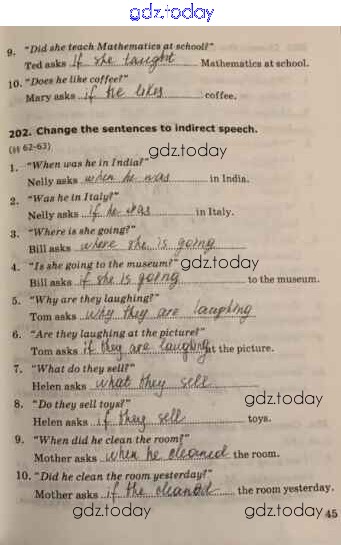 gdz.today
9. "Did she teach Mathematics at school?"
Ted asks if she taught Mathematics at school.
10. "Does he like coffee?"
Mary asks if he likes coffee.
202. Change the sentences to indirect speech.
(§§ 62-63)
gdz.today
1. "When was he in India?"
Nelly asks when he was in India.
2. "Was he in Italy?"
Nelly asks if he was in Italy.
3. "Where is she going?"
Bill asks where she is going
4. "Is she going to the museum?" gdz.today
Bill asks if she is going to the museum.
5. "Why are they laughing?"
Tom asks why they are laughing
6. "Are they laughing at the picture?"
Tom asks if they are laughing at the picture.
7. "What do they sell?"
Helen asks what they sell
8. "Do they sell toys?" gdz.today
Helen asks if they sell toys.
9. "When did he clean the room?"
Mother asks when he cleaned the room.
10. "Did he clean the room yesterday?"
Mother asks if the cleaned the room yesterday.
gdz.today gdz.today 45